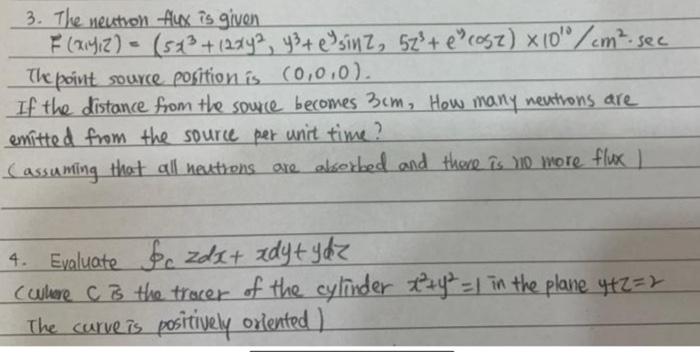 3. The neutron flux is given
F(x,y,z) = (5x³+12xy², y³+e^y sin z, 5z³+e^y cos z) ×10¹⁰/cm²·sec
The point source position is (0,0,0).
If the distance from the source becomes 3cm, How many neutrons are
emitted from the source per unit time?
(assuming that all neutrons are absorbed and there is no more flux)
4. Evaluate ∮c zdx + xdy + ydz
(where C is the tracer of the cylinder x²+y²=1 in the plane y+z=2
The curve is positively oriented)